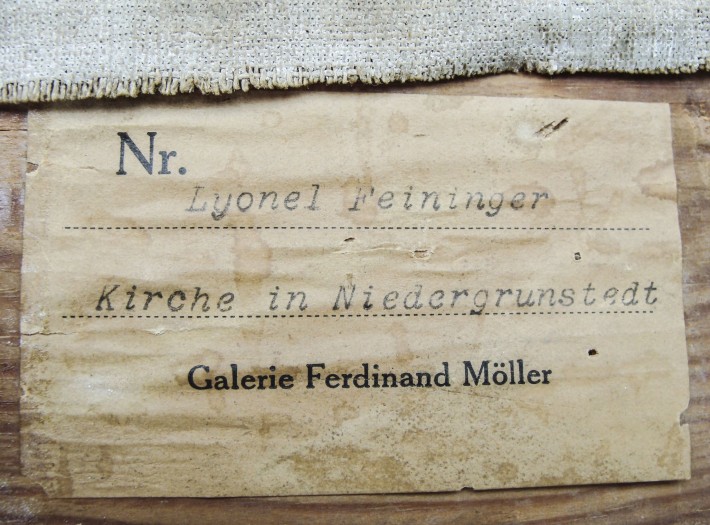 Nr.
Lyonel Feininger
Kirche in Niedergrunstedt
Galerie Ferdinand Möller